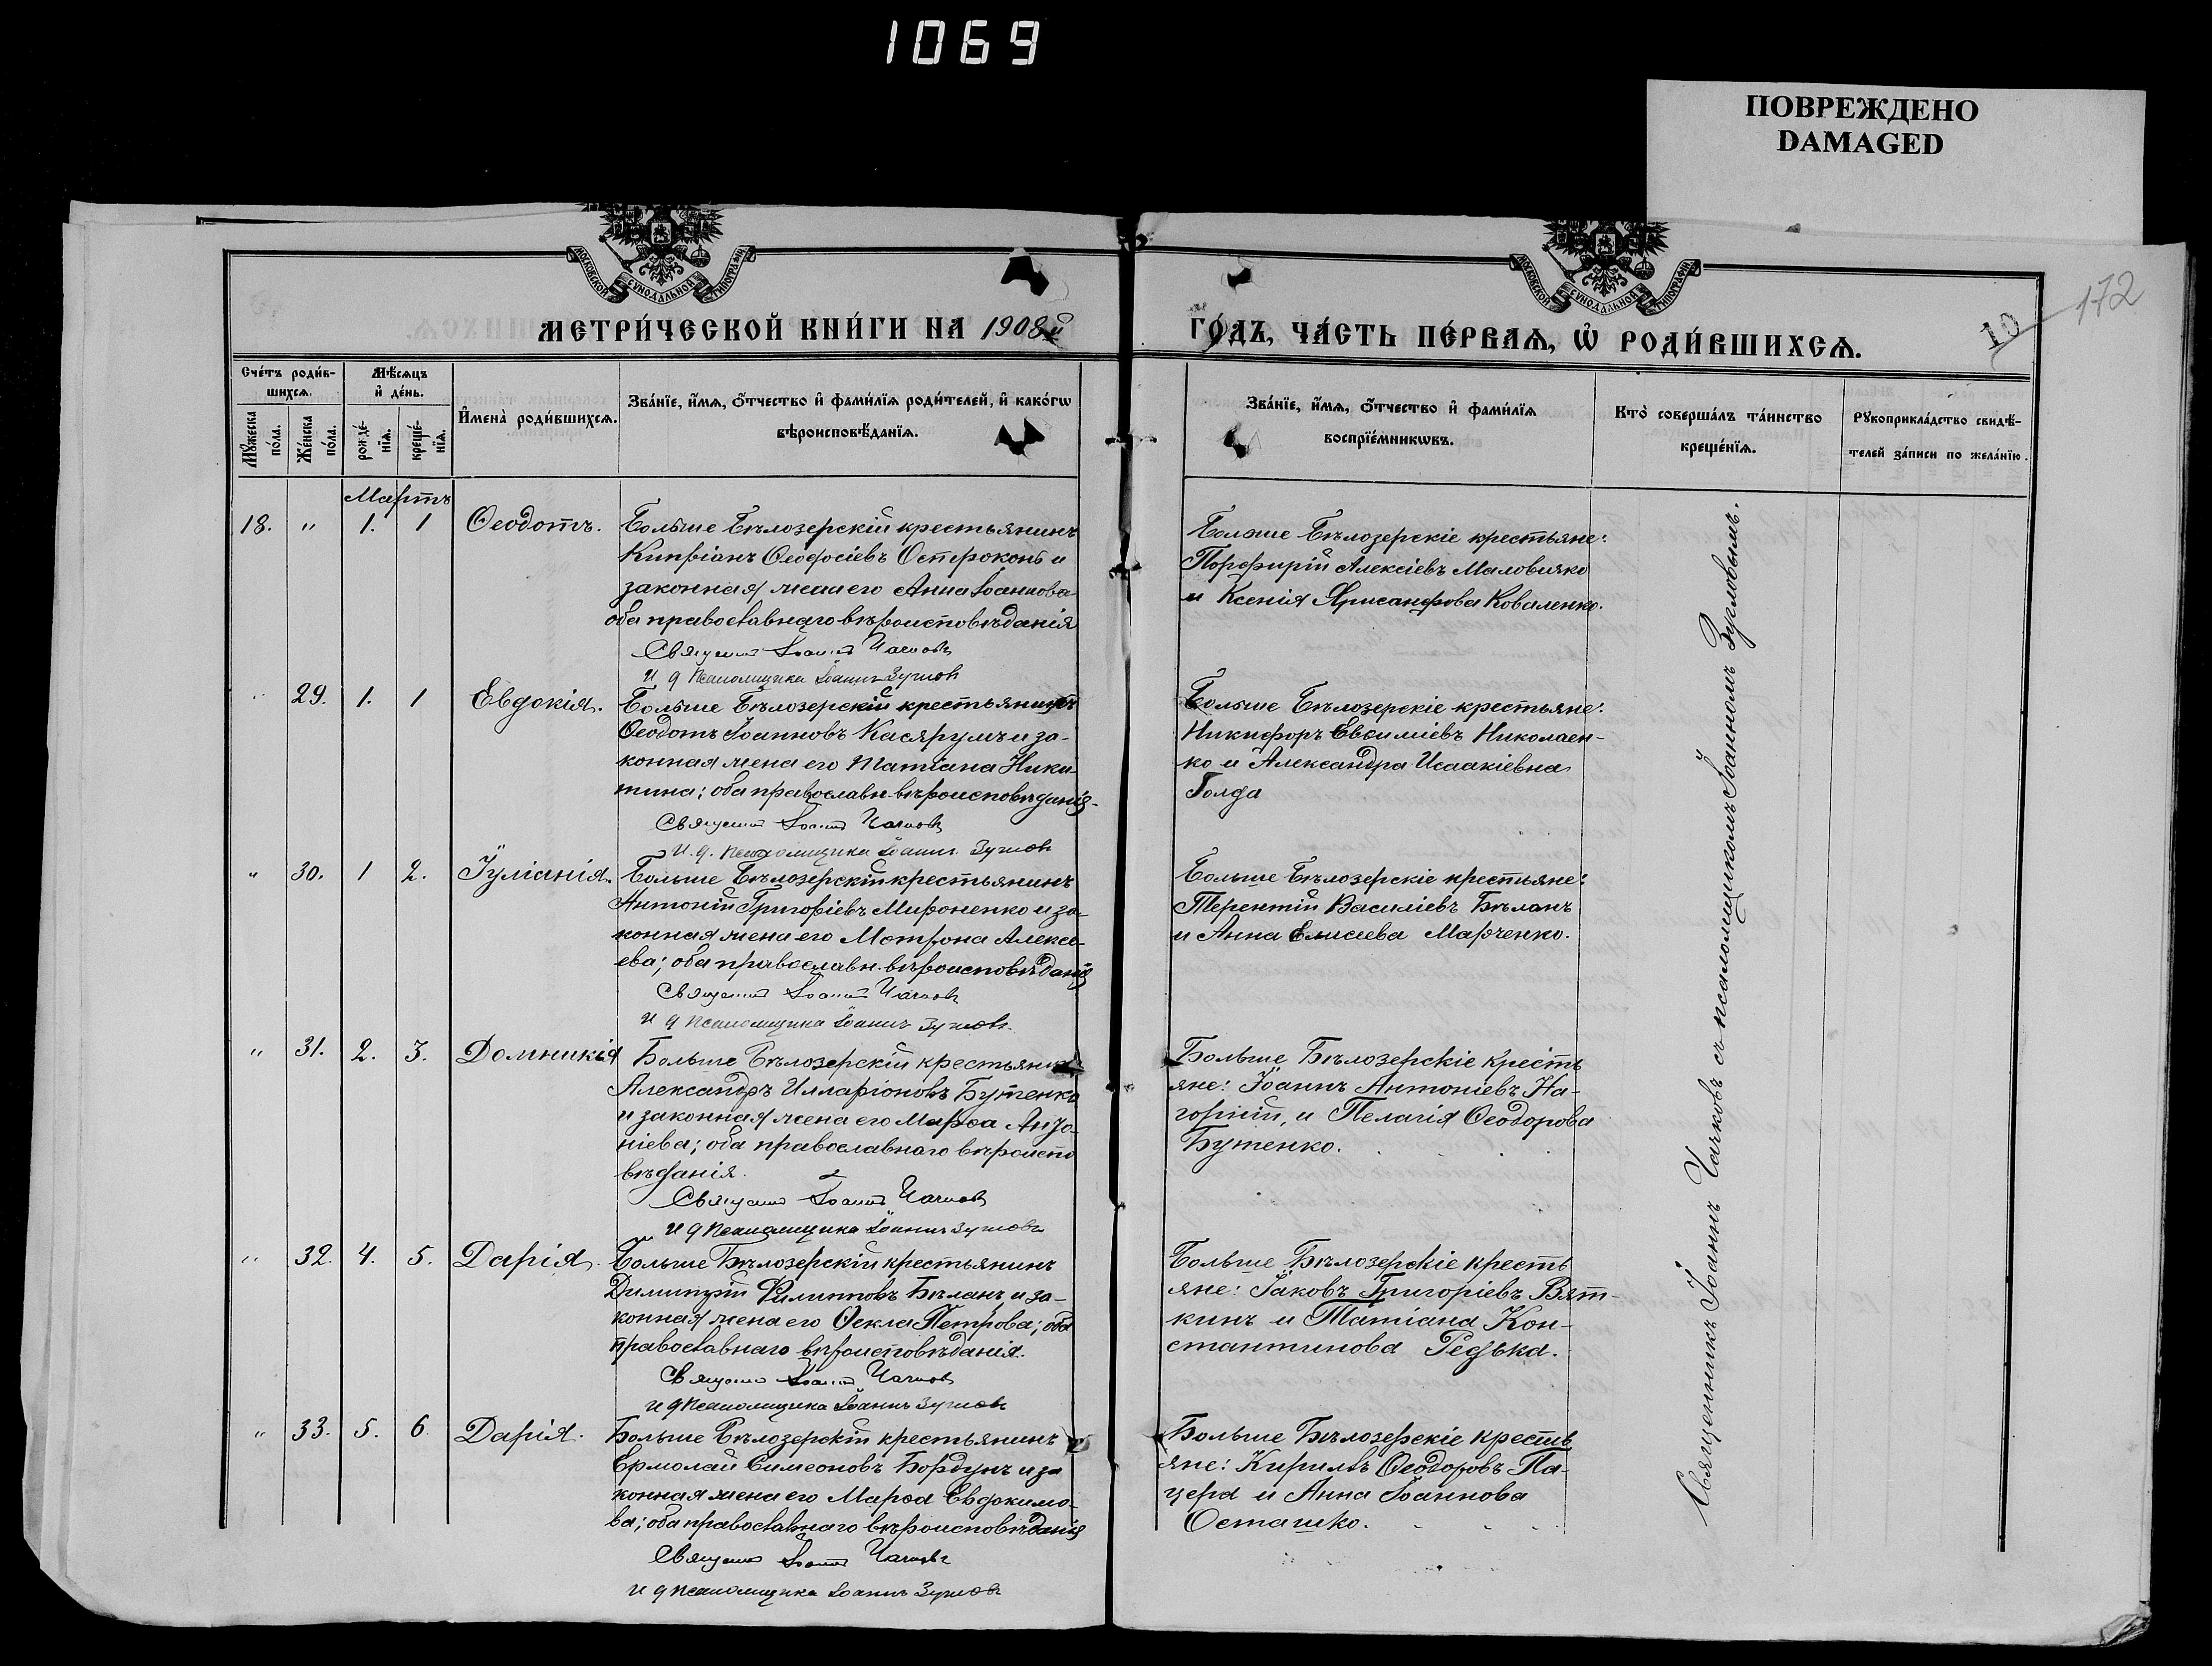 1069
ПОВРЕЖДЕНО
DAMAGED
МОСКОВСКОЙ СѴНОДАЛЬНОЙ ТИПОГРАФІИ
МОСКОВСКОЙ СѴНОДАЛЬНОЙ ТИПОГРАФІИ
172
10
МЕТРИ́ЧЕСКОЙ КНИ́ГИ НА 1908й
ГО́ДЪ, ЧА́СТЬ ПЕ́РВАѦ, Ѡ҆ РОДИ́ВШИХСѦ.
Сче́тъ роди́в-
шихсѧ.
Мꙋжеска по́ла.
Же́нска по́ла.
Мѣ́сѧцъ
и҆ де́нь.
рожде́-
нїѧ.
креще́-
нїѧ.
И҆мена̀ роди́вшихсѧ.
Зва́нїе, и҆́мѧ, ѻ҆́тчество и҆ фами́лїѧ роди́телей, и҆ како́гѡ
вѣроисповѣ́данїѧ.
Зва́нїе, и҆́мѧ, ѻ҆́тчество и҆ фами́лїѧ
воспрїе́мникѡвъ.
Кто̀ соверша́лъ та́инство
креще́нїѧ.
Рꙋкоприкла́дство свидѣ́-
телей за́писи по жела́нїю.
Мартъ
18. " 1. 1 Ѳеодотъ.
Больше Бѣлозерскій крестьянинъ
Кипріанъ Ѳеодосіевъ Остроконь и
законная жена его Анна Іоаннова
оба православнаго вѣроисповѣданія
Священ Іоаннъ Чачковъ
И д псаломщика Іоаннъ Зугловъ
Больше Бѣлозерскіе крестьяне:
Порфирій Алексіевъ Маловичко
и Ксенія Хрисанфова Коваленко.
" 29. 1. 1 Евдокія.
Больше Бѣлозерскій крестьянинъ
Ѳеодотъ Іоанновъ Касярумъ и за-
конная жена его Татіана Ники-
тина; оба православн. вѣроисповѣданія
Священ Іоаннъ Чачковъ
И. д. псаломщика Іоаннъ Зугловъ
Больше Бѣлозерскіе крестьяне:
Никифоръ Евѳиміевъ Николаен-
ко и Александра Исаакіевна
Голда
" 30. 1 2. Іуліанія.
Больше Бѣлозерскій крестьянинъ
Антоній Григоріевъ Мироненко и за-
конная жена его Мотрона Алексе-
ева; оба православн. вѣроисповѣданія
Священ Іоаннъ Чачковъ
И д псаломщика Іоаннъ Зугловъ
Больше Бѣлозерскіе крестьяне:
Терентій Василіевъ Бѣланъ
и Анна Елисеева Марченко.
" 31. 2. 3. Домникія
Больше Бѣлозерскій крестьянинъ
Александръ Илларіоновъ Бутенко
и законная жена его Марѳа Анто-
ніева; оба православнаго вѣроиспо
вѣданія.
Священ Іоаннъ Чачковъ
И д псаломщика Іоаннъ Зугловъ
Больше Бѣлозерскіе кресть
яне: Іоаннъ Антоніевъ На-
горній, и Пелагія Ѳеодорова
Бутенко.
" 32. 4. 5. Дарія.
Больше Бѣлозерскій крестьянинъ
Димитрій Филипповъ Бѣланъ и за-
конная жена его Ѳекла Петрова; оба
православнаго вѣроисповѣданія.
Священ Іоаннъ Чачковъ
И д псаломщика Іоаннъ Зугловъ
Больше Бѣлозерскіе кресть
яне: Іаковъ Григоріевъ Вят-
кинъ и Татіана Кон-
стантинова Редька.
" 33. 5. 6. Дарія.
Больше Бѣлозерскій крестьянинъ
Ермолай Симеоновъ Бордунъ и за
конная жена его Марѳа Евдокимо-
ва; оба православнаго вѣроисповѣданія
Священ Іоаннъ Чачковъ
И д псаломщика Іоаннъ Зугловъ
Больше Бѣлозерскіе кресть
яне: Кириллъ Ѳеодоровъ Па-
цера и Анна Іоаннова
Осташко.
Священникъ Іоаннъ Чачковъ съ псаломщикомъ Іоанномъ Зугловымъ.